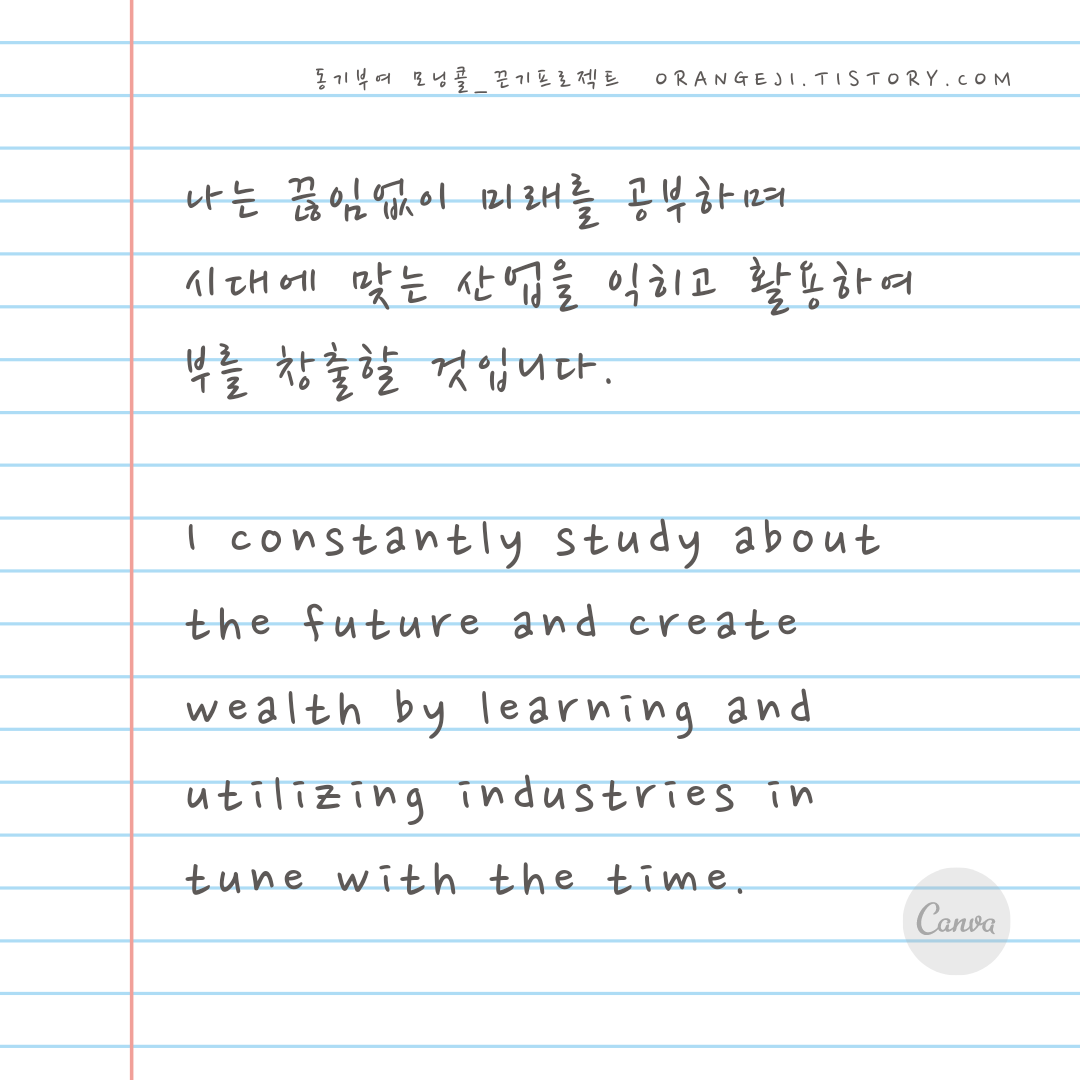 동기부여 모닝콜_끈기프로젝트 ORANGEJI.TISTORY.COM
나는 끊임없이 미래를 공부하며
시대에 맞는 산업을 익히고 활용하여
부를 창출할 것입니다.
I constantly study about
the future and create
wealth by learning and
utilizing industries in
tune with the time.
Canva